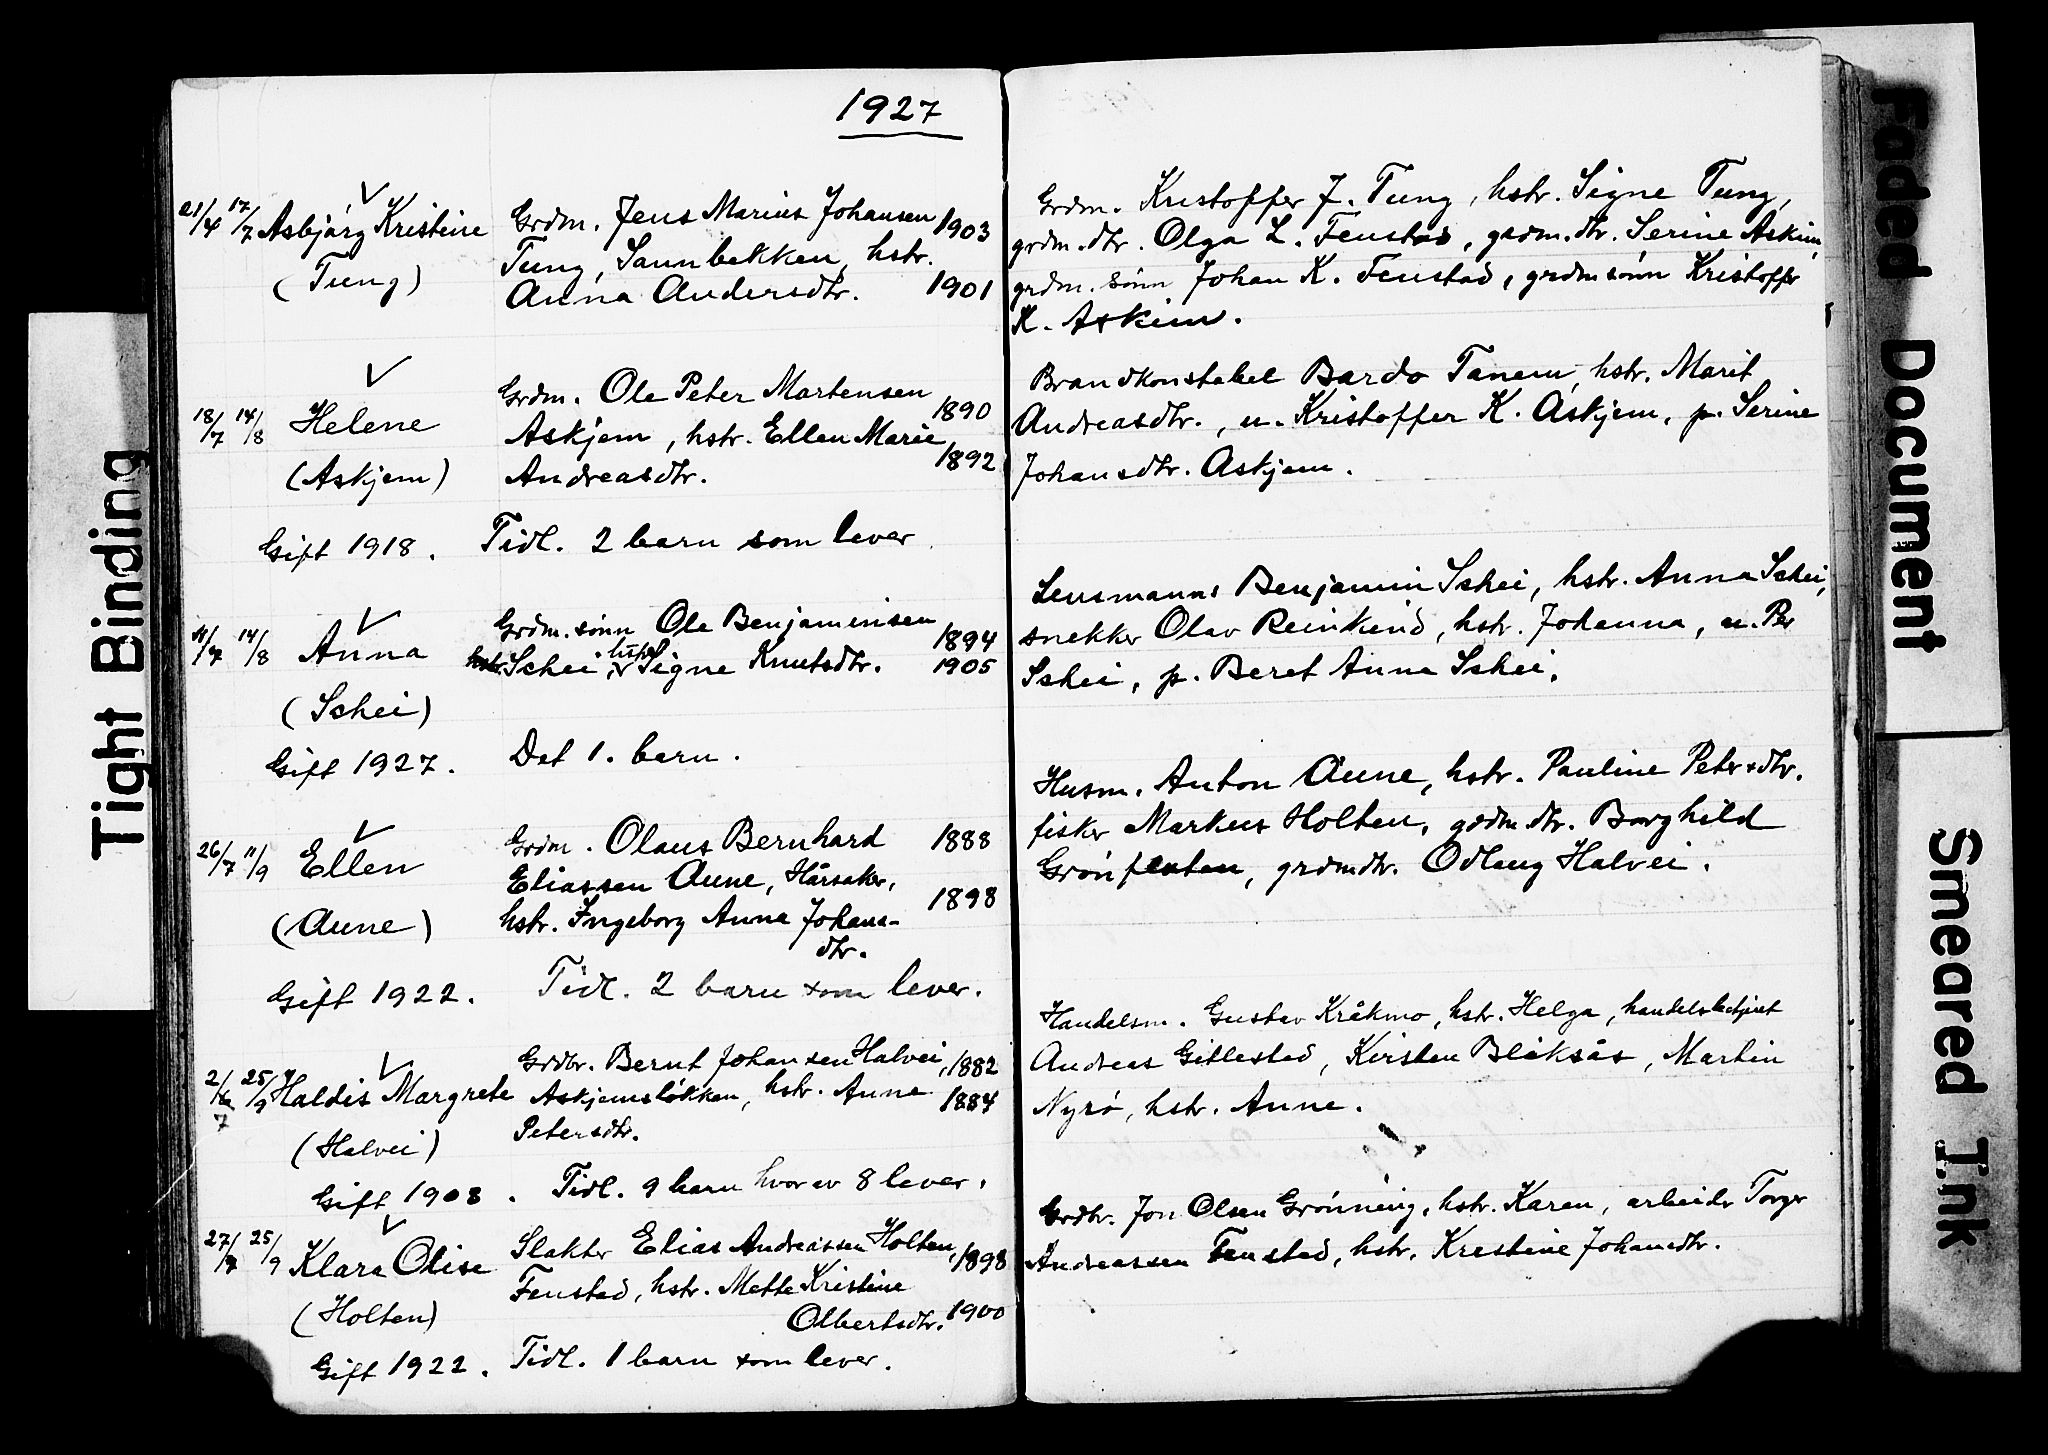 1927
21/4 17/7 Asbjørg Kristine
(Tung)
Grdm. Jens Marius Johansen 1903
Tung, Sannbekken, hstr.
Anna Andersdtr. 1901
Grdm. Kristoffer J. Tung, hstr. Signe Tung,
grdm.dtr. Olga L. Fenstad, grdm.dtr. Serine Askim,
grdm.sønn Johan K. Fenstad, grdmsønn Kristoffer
K. Askim.
18/7 14/8 Helene
(Askjem)
Gift 1918.
Grdm. Ole Peter Martensen 1890
Askjem, hstr. Ellen Marie 1892
Andreasdtr.
Tidl. 2 barn som lever
Brandkonstabel Bardo Tanem, hstr. Marit
Andreasdtr., u. Kristoffer K. Askjem, p. Serine
Johansdtr. Askjem.
14/8 Anna
(Schei)
Gift 1927.
Grdm.sønn Ole Benjaminsen 1894
hstr. Schei, Signe Knutsdtr. 1905
Det 1. barn.
Lensmann Benjamin Schei, hstr. Anna Schei,
snekker Olav Reinkind, hstr. Johanna, u. Per
Schei, p. Beret Anna Schei.
26/7 11/9 Ellen
(Aune)
Gift 1922.
Grdm. Olaus Bernhard 1888
Eliassen Aune, Hårsaker,
hstr. Ingeborg Anna Johans- 1898
dtr.
Tidl. 2 barn som lever.
Husm. Anton Aune, hstr. Pauline Petersdtr.
fisker Markus Holten, grdm.dtr. Borghild
Grønflaten, grdmdtr. Odlaug Halvei.
2/6 7 25/9 Haldis Margrete
(Halvei)
Gift 1908.
Grdbr. Bernt Johansen Halvei, 1882
Askjemsløkken, hstr. Anne 1884
Petersdtr.
Tidl. 9 barn hvorav 8 lever.
Handelsm. Gustav Kråkmo, hstr. Helga, handelsbetjent
Andreas Gillestad, Kirsten Blåksås, Martin
Nyrø, hstr. Anne.
27/7 25/9 Klara Olise
(Holten)
Gift 1922.
Slakter Elias Andreassen Holten, 1898
Fenstad, hstr. Mette Kristine
Olbertsdtr. 1900
Tidl. 1 barn som lever.
Grdbr. Jon Olsen Grønning, hstr. Karen, arbeider Torger
Andreassen Fenstad, hstr. Kristine Johansdtr.
Tight Binding
Faded Document
Smeared Ink